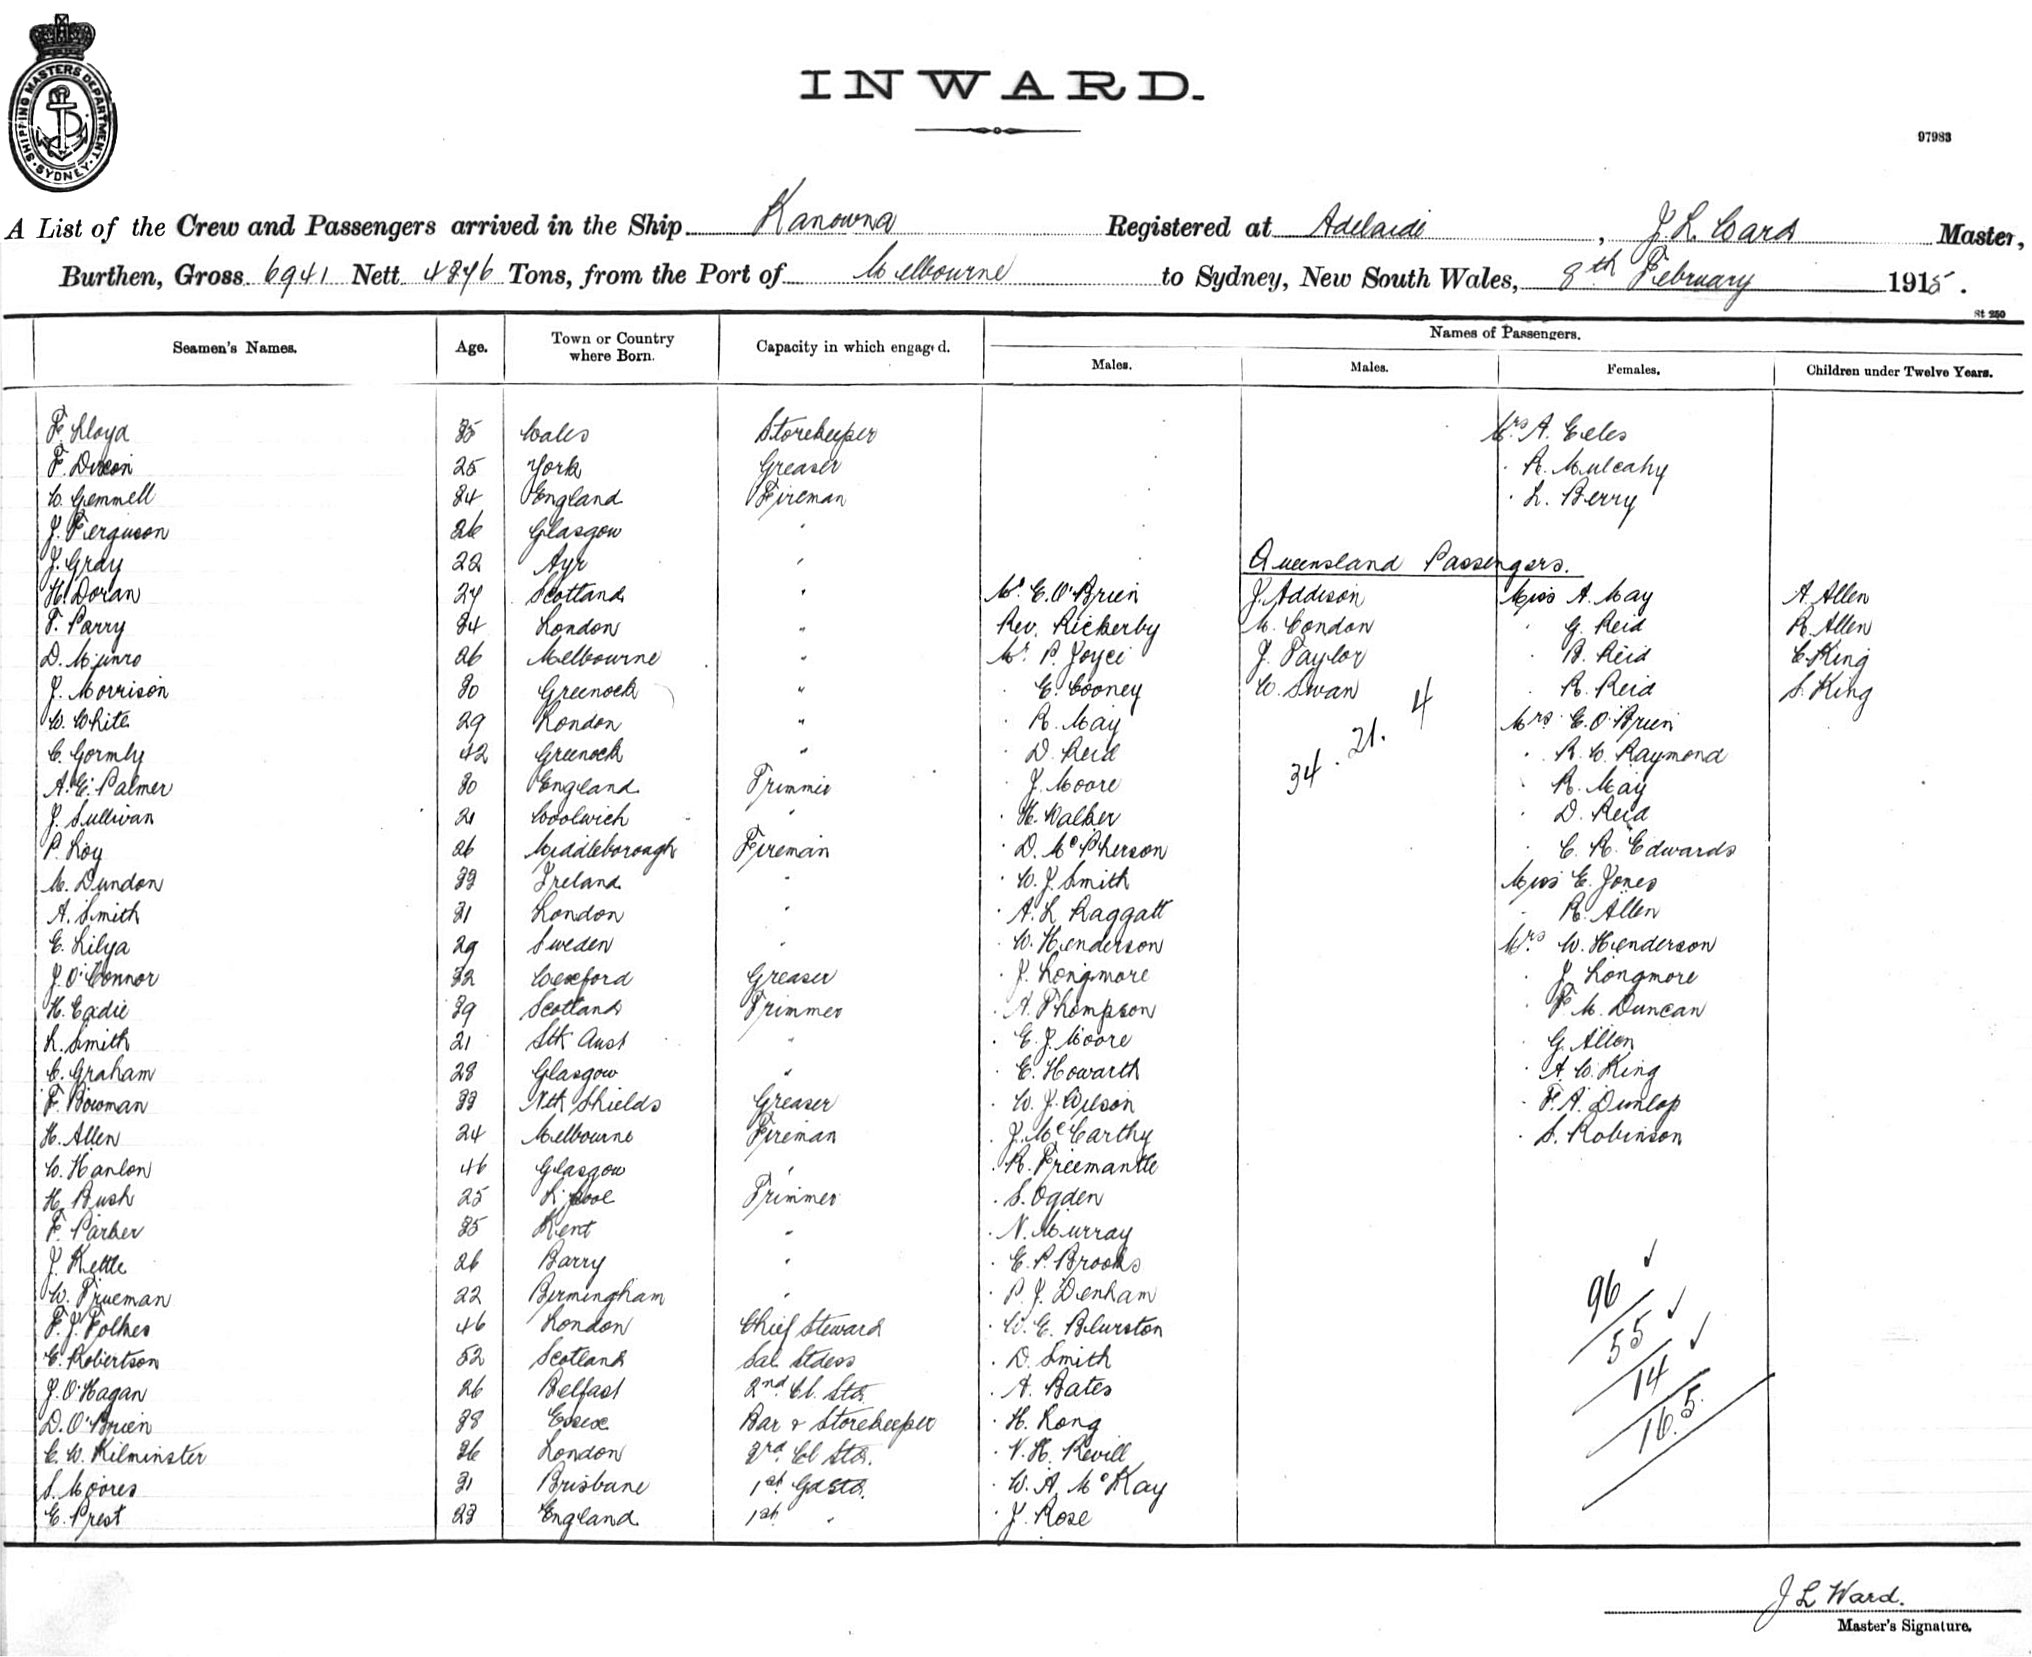 SHIPPING MASTERS DEPARTMENT. SYDNEY.
INWARD.
97983
A List of the Crew and Passengers arrived in the Ship Kanowna Registered at Adelaide, J. L. Ward Master,
Burthen, Gross 6941 Nett 4846 Tons, from the Port of Melbourne to Sydney, New South Wales, 8th February 1915.
St 250
Seamen's Names. Age. Town or Country where Born. Capacity in which engaged. Names of Passengers.
Males. Males. Females. Children under Twelve Years.
F. Lloyd 35 Wales Storekeeper Mrs A. Eeles
F. Dixon 25 York Greaser " R. Mulcahy
W. Gemmell 34 England Fireman " L. Berry
J. Ferguson 26 Glasgow "
J. Gray 22 Ayr " Queensland Passengers.
H. Doran 27 Scotland " Mr E. O'Brien J. Addison Miss A. May A. Allen
F. Parry 34 London " Rev. Rickerby M. Condon " G. Reid R. Allen
D. Munro 26 Melbourne " Mr P. Joyce J. Taylor " B. Reid C. King
J. Morrison 30 Greenock " " C. Cooney W. Swan " R. Reid S. King
W. White 29 London " " R. May Mrs E. O'Brien
C. Gormly 42 Greenock " " D. Reid 34. 21. 4 " R. W. Raymond
A. E. Palmer 30 England Trimmer " J. Moore " R. May
J. Sullivan 21 Woolwich " " H. Walker " D. Reid
P. Loy 26 Middleborough Fireman " D. McPherson " C. R. Edwards
M. Dundon 33 Ireland " " W. J. Smith Miss E. Jones
A. Smith 31 London " " A. L. Raggatt " R. Allen
E. Lilya 29 Sweden " " W. Henderson Mrs W. Henderson
J. O'Connor 32 Wexford Greaser " J. Longmore " J. Longmore
H. Eadie 39 Scotland Trimmer " A. Thompson " F. M. Duncan
L. Smith 21 Sth Aust " " E. J. Moore " G. Allen
C. Graham 28 Glasgow " " E. Howarth " A. W. King
F. Bowman 33 Nth Shields Greaser " W. J. Wilson " F. A. Dunlop
H. Allen 24 Melbourne Fireman " J. McCarthy " S. Robinson
W. Hanlon 46 Glasgow " " R. Freemantle
H. Bush 25 L'pool Trimmer " S. Ogden
F. Parker 35 Kent " " N. Murray
J. Kettle 26 Barry " " E. P. Brooks
W. Trueman 22 Birmingham " " P. J. Denham 96
F. J. Folkes 46 London Chief Steward " W. E. Blurston 55
C. Robertson 52 Scotland Sal. Stdess " D. Smith 14
J. O'Hagan 26 Belfast 2nd Cl. Std. " A. Bates 165
D. O'Brien 38 Essex Bar & Storekeeper " H. Long
C. W. Kilminster 36 London 3rd Cl Std. " N. H. Revill
S. Moores 31 Brisbane 1st Gd Std. " W. A. McKay
C. Prest 23 England 1st " " J. Rose
J L Ward.
Master's Signature.